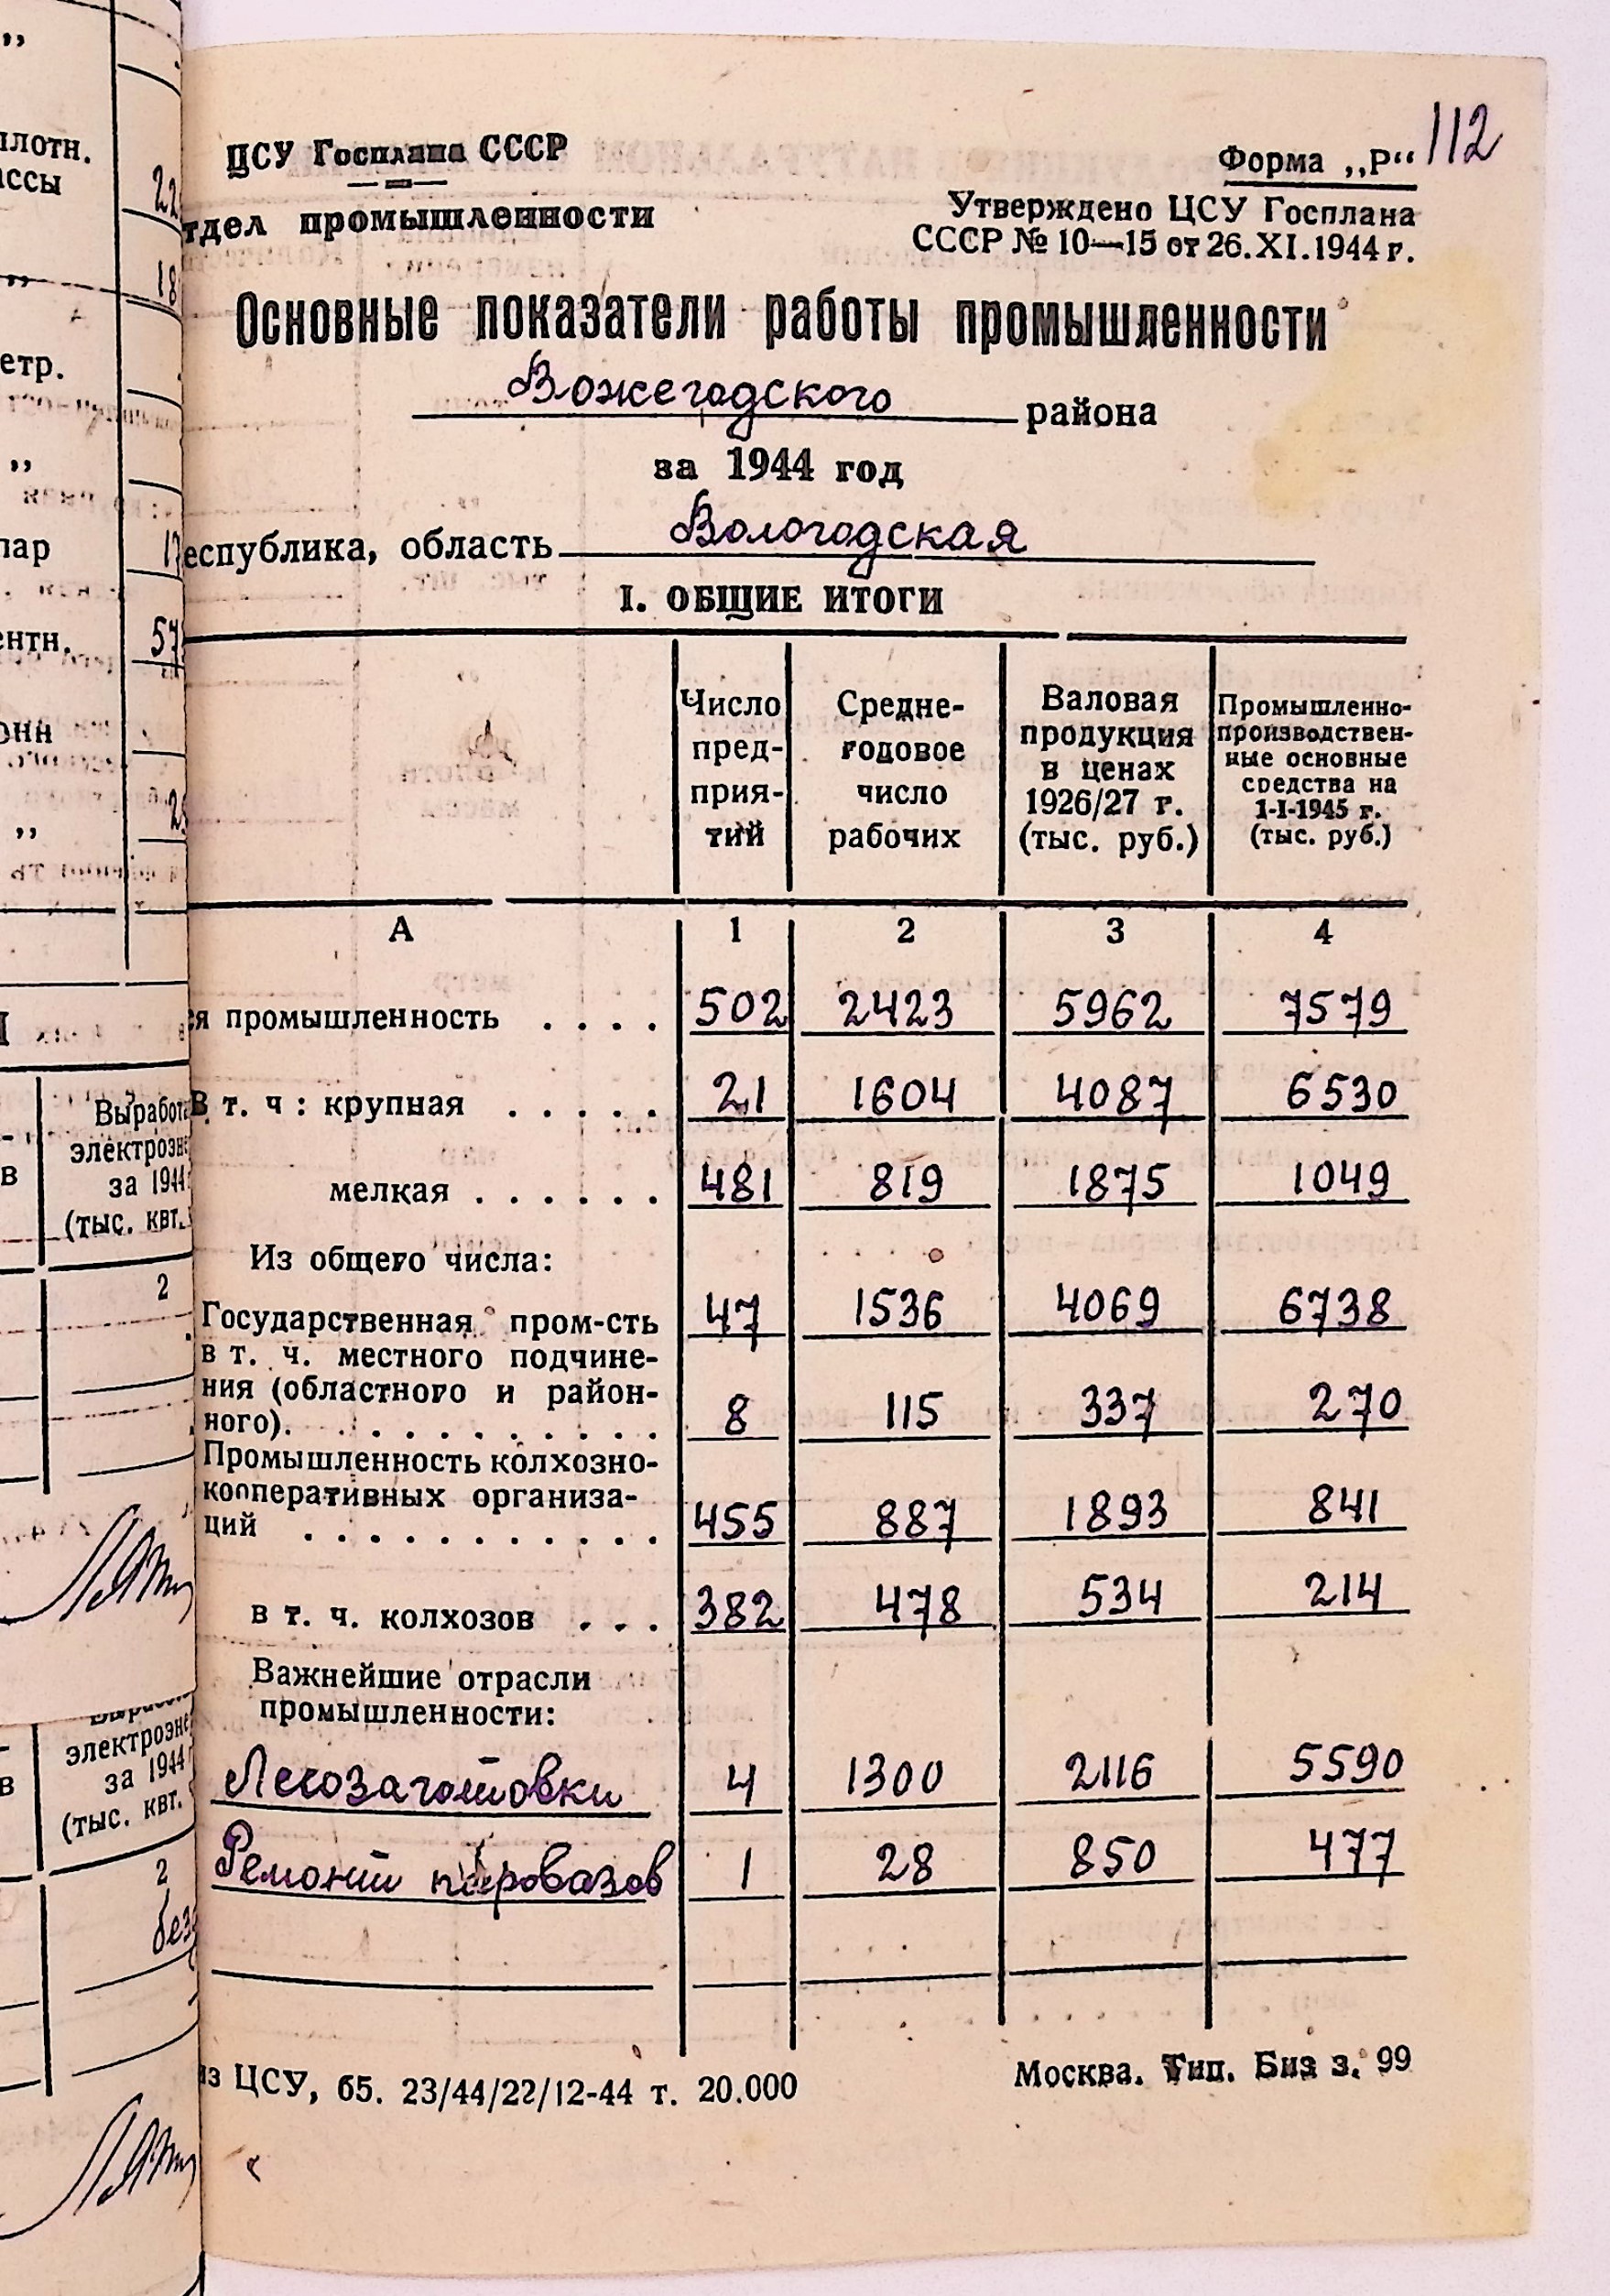 112
ЦСУ Госплана СССР
Форма „Р“
тдел промышленности
Утверждено ЦСУ Госплана
СССР № 10—15 от 26.XI.1944 г.
Основные показатели работы промышленности
Вожегодского района
за 1944 год
еспублика, область Вологодская
I. ОБЩИЕ ИТОГИ
Число пред- прия- тий
Средне- годовое число рабочих
Валовая продукция в ценах 1926/27 г. (тыс. руб.)
Промышленно- производствен- ные основные средства на 1-I-1945 г. (тыс. руб.)
А 1 2 3 4
я промышленность . . . . 502 2423 5962 7579
В т. ч : крупная . . . . . 21 1604 4087 6530
мелкая . . . . . . 481 819 1875 1049
Из общего числа:
Государственная пром-сть 47 1536 4069 6738
в т. ч. местного подчине-
ния (областного и район-
ного). . . . . . . . . . . 8 115 337 270
Промышленность колхозно-
кооперативных организа-
ций . . . . . . . . . . . 455 887 1893 841
в т. ч. колхозов . . . 382 478 534 214
Важнейшие отрасли
промышленности:
Лесозаготовки 4 1300 2116 5590
Ремонт паровозов 1 28 850 477
из ЦСУ, б5. 23/44/22/12-44 т. 20.000
Москва. Тип. Биз з. 99
плотн.
ассы
22
„
18
етр.
„
пар
17
ентн.
57
онн
„
2
Выработ
электроэн
за 1944
(тыс. квт.
в
2
электроэне
за 1944
(тыс. квт.
в
2
без